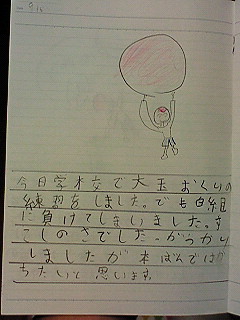 今日学校で大玉おくりの
練習をしました。でも白組
に負けてしまいました。す
こしのさでした。がっかり
しましたが本ばんではか
ちたいと思います。